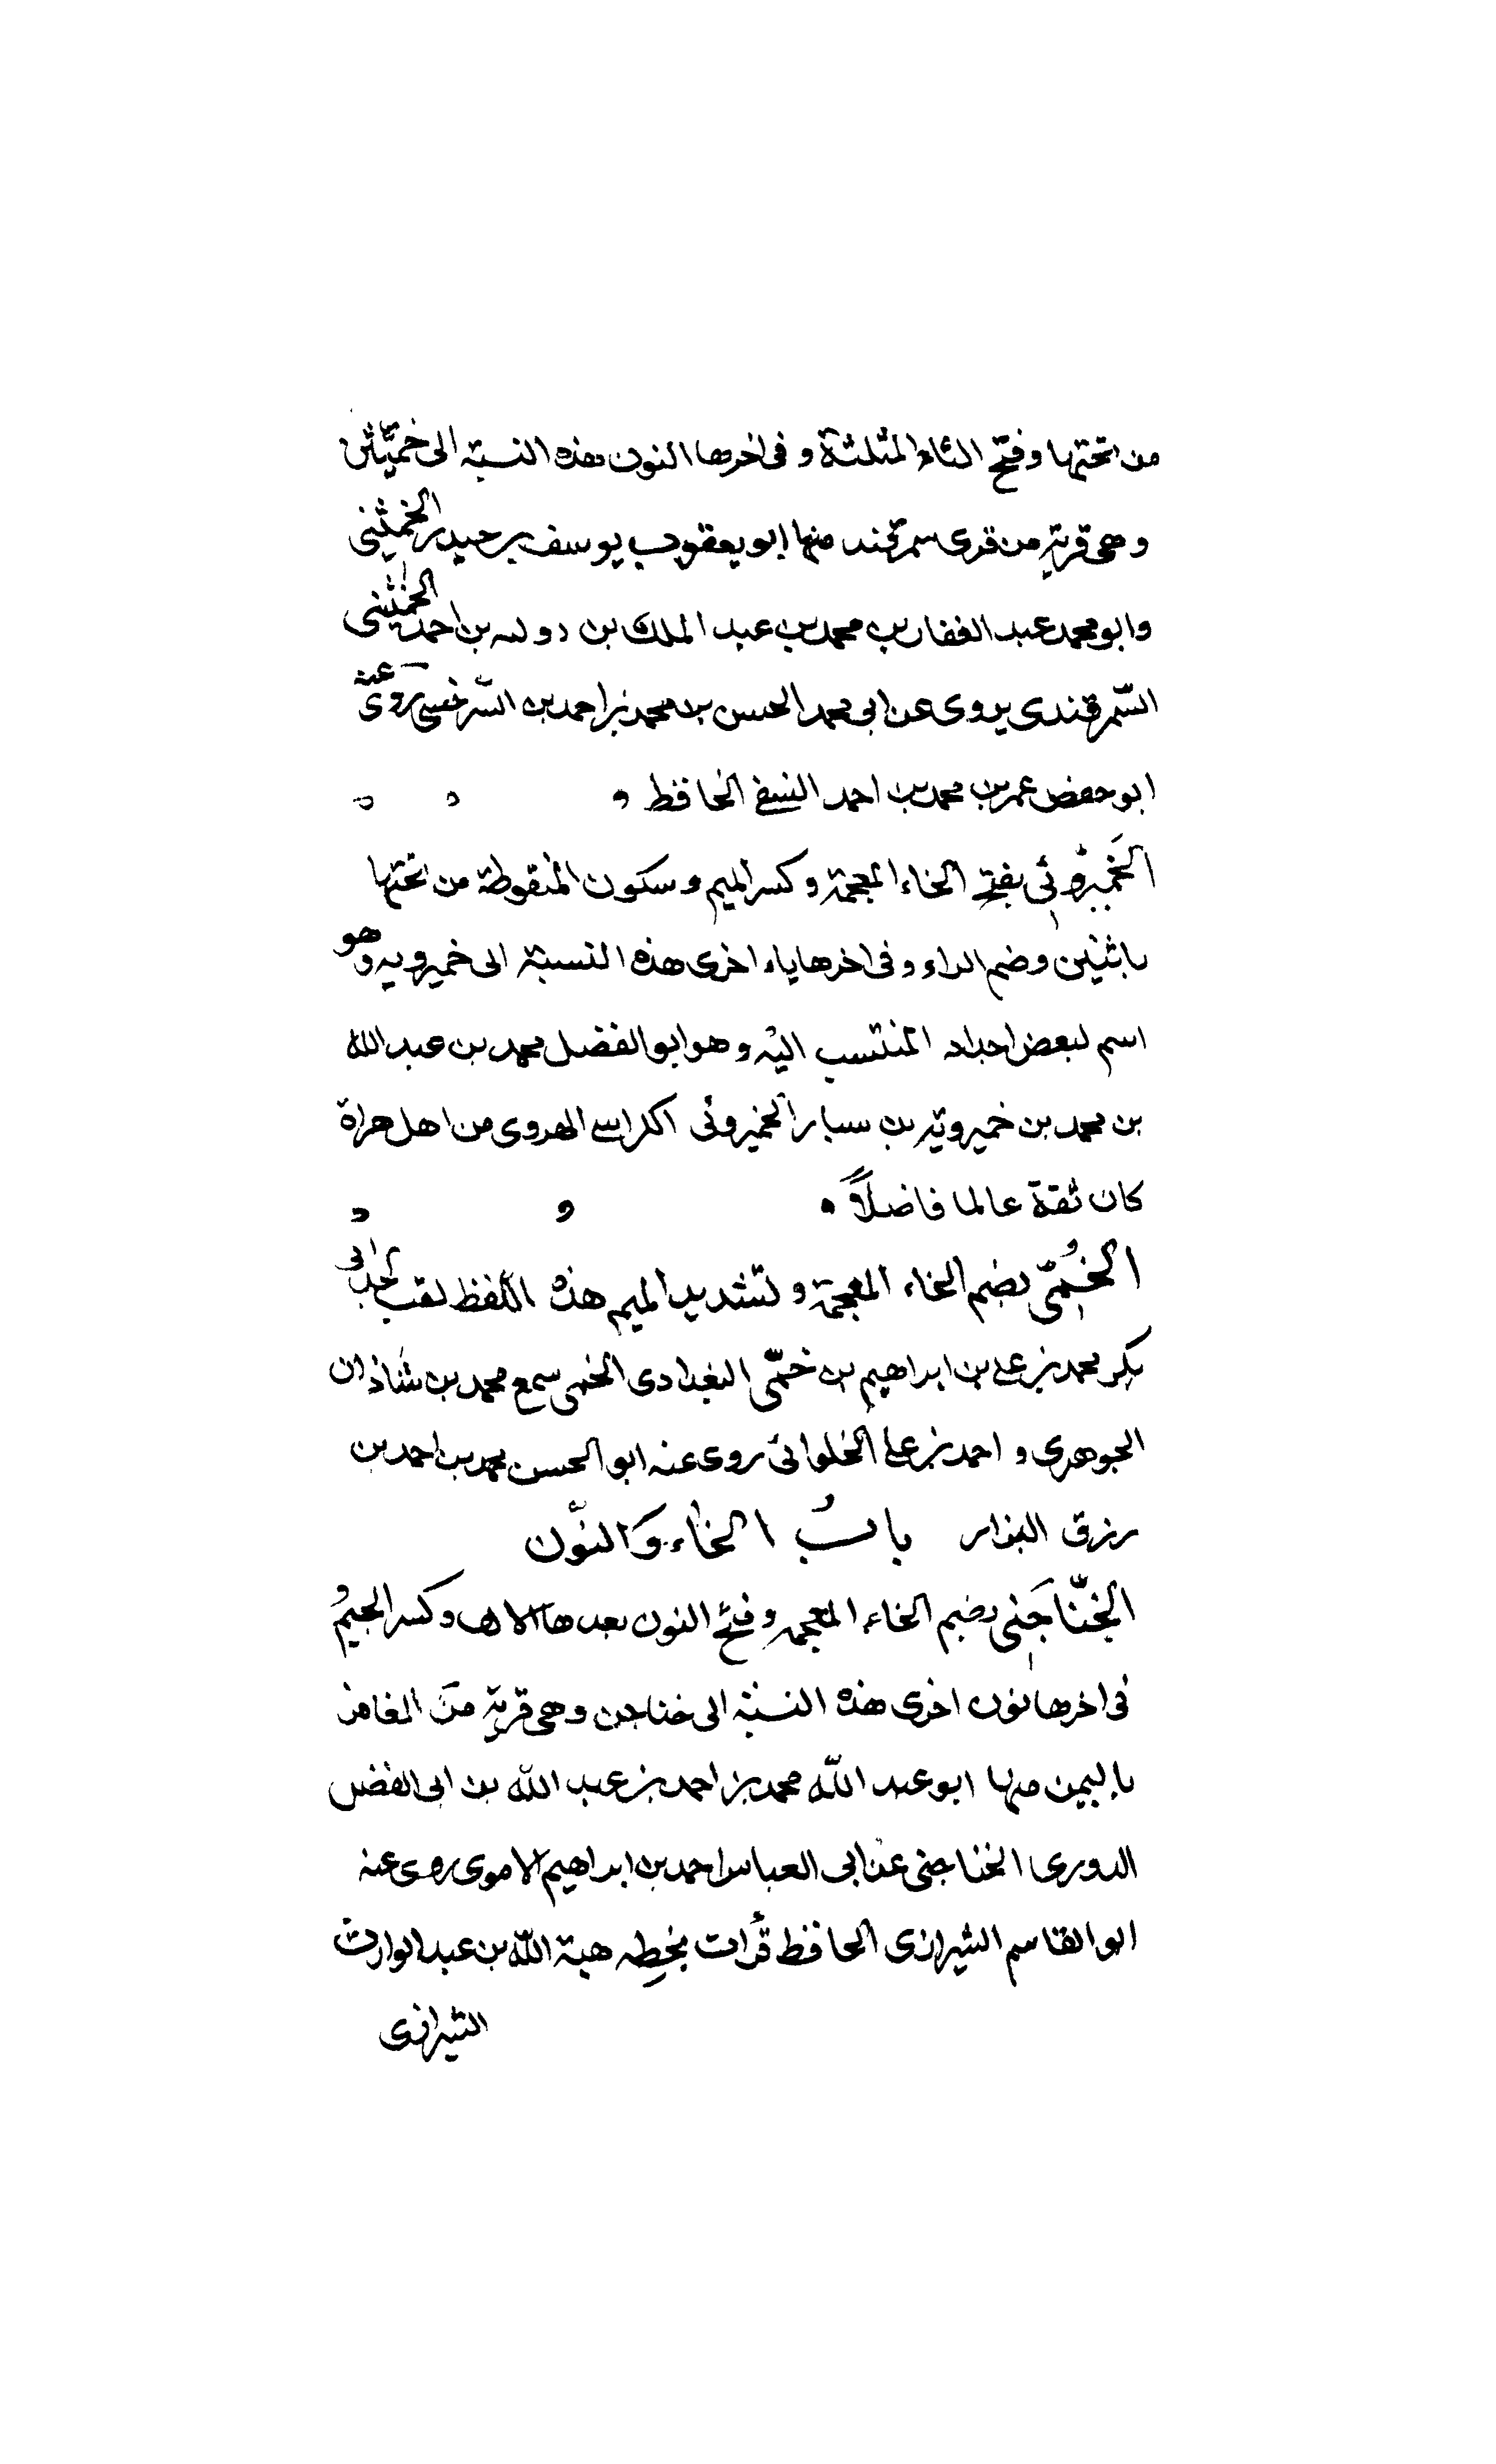 من تحتها وفتح الثاء المثلثة وفى اخرها النون هذه النسبة الى خميثن
وهى قرية من قرى سمرقند منها ابو يعقوب يوسف بن حيدر الخميثنى
وابو محمد عبد الغفار بن محمد بن عبد الملك بن دولسه بن احمد الخميثنى
السّمرقندى يروى عن ابى محمد الحسن بن محمد بن احمد بن السّرخسى روى عنه
ابو حفص عمر بن محمد بن احمد النسفى الحافظ
الخَميرُوئى بفتح الخاء المعجمة وكسر الميم وسكون المنقوطة من تحتها
باثنين وضم الراء وفى اخرها ياء اخرى هذه النسبة الى خميرويه وهو
اسم لبعض اجداد المنتسب اليه وهو ابو الفضل محمد بن عبد الله
بن محمد بن خميرويه بن سيار الخميروئى الكرابسى الهروى من اهل هراة
كان ثقة عالما فاضلاً
الخُمّى بضم الخاء المعجمة وتشديد الميم هذه اللفظ لقب لجد ابى
بكر محمد بن على بن ابراهيم بن خمّى البغدادى الخمى سمع محمد بن شاذان
الجوهرى و احمد بن على الخلوانى روى عنه ابو الحسن محمد بن احمد بن
رزق البزار باب الخاء والنّون
الخنّاجَنى بضم الخاء المعجمه وفتح النون بعدها الالف وكسر الجيم و
فى اخرها نون اخرى هذه النسبة الى خناجن وهى قرية من المغافر
باليمن منها ابو عبد الله محمد بن احمد بن عبد الله بن ابى الفضل
الدورى الخناجنى عن ابى العباس احمد بن ابراهيم الاموى روى عنه
ابو القاسم الشيرازى الحافظ قرأت بخطه هبة الله بن عبد الوارث
الشيرازى